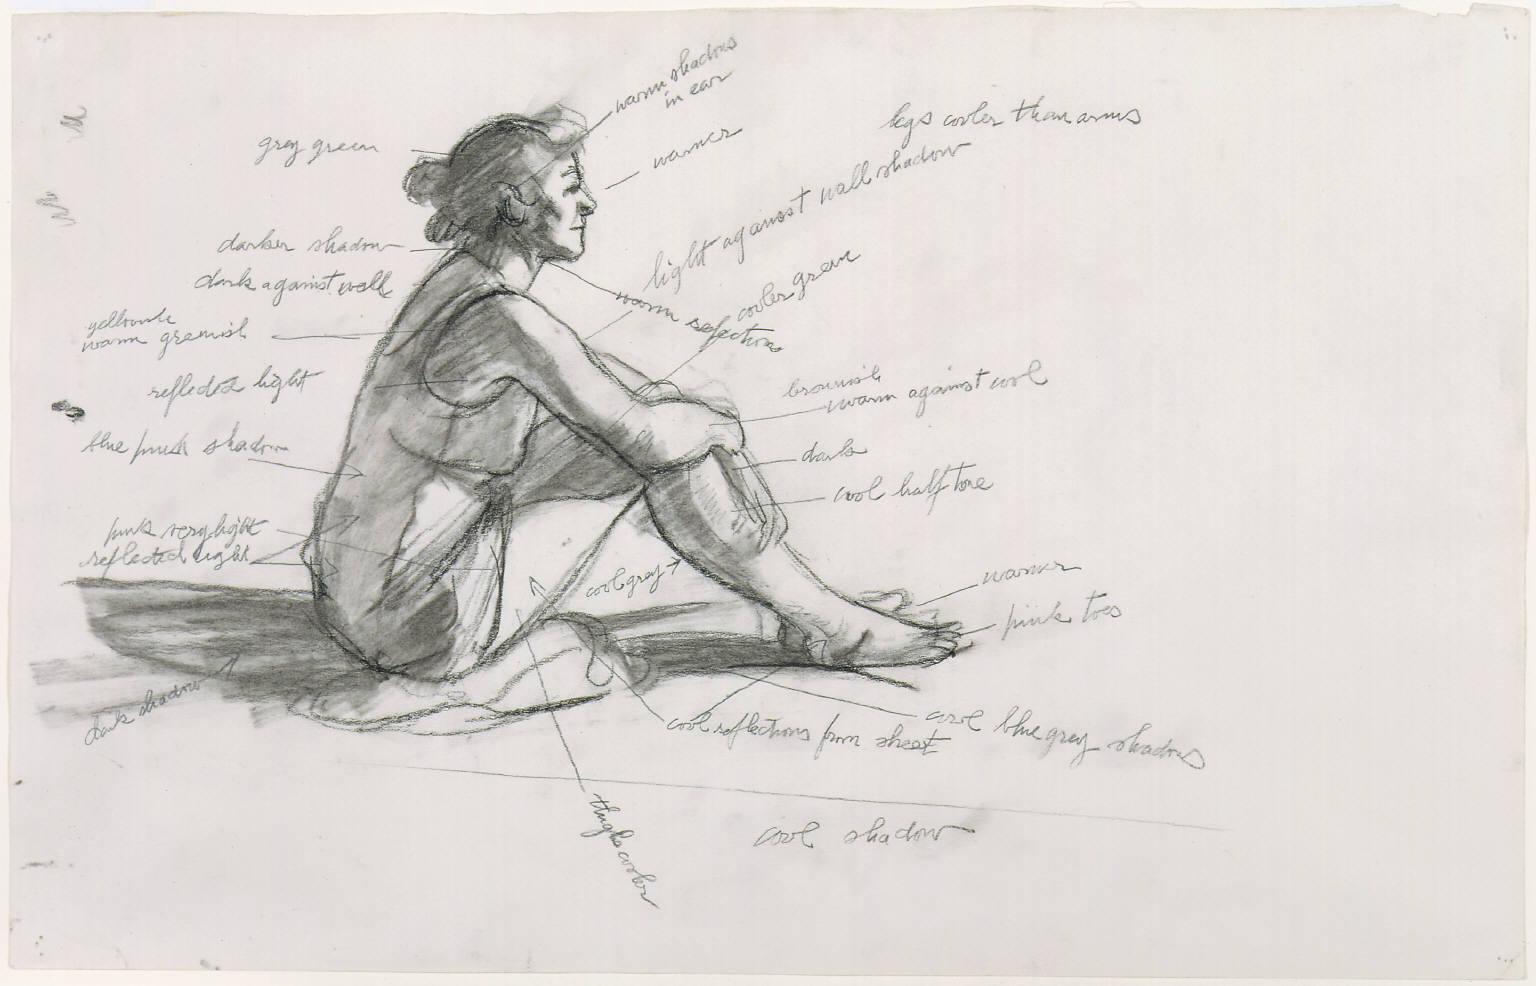 warm shadows
in ear
grey green
warmer
legs cooler than arms
darker shadow
light against wall shadow
dark against wall
warm reflections
cooler
yellowish
warm greenish
reflected light
brownish
warm against cool
blue pink shadow
dark
cool half tone
pink very light
reflected light
cool grey
warmer
pink toes
dark shadow
cool reflections from sheet
cool blue grey shadows
thighs cooler
cool shadow